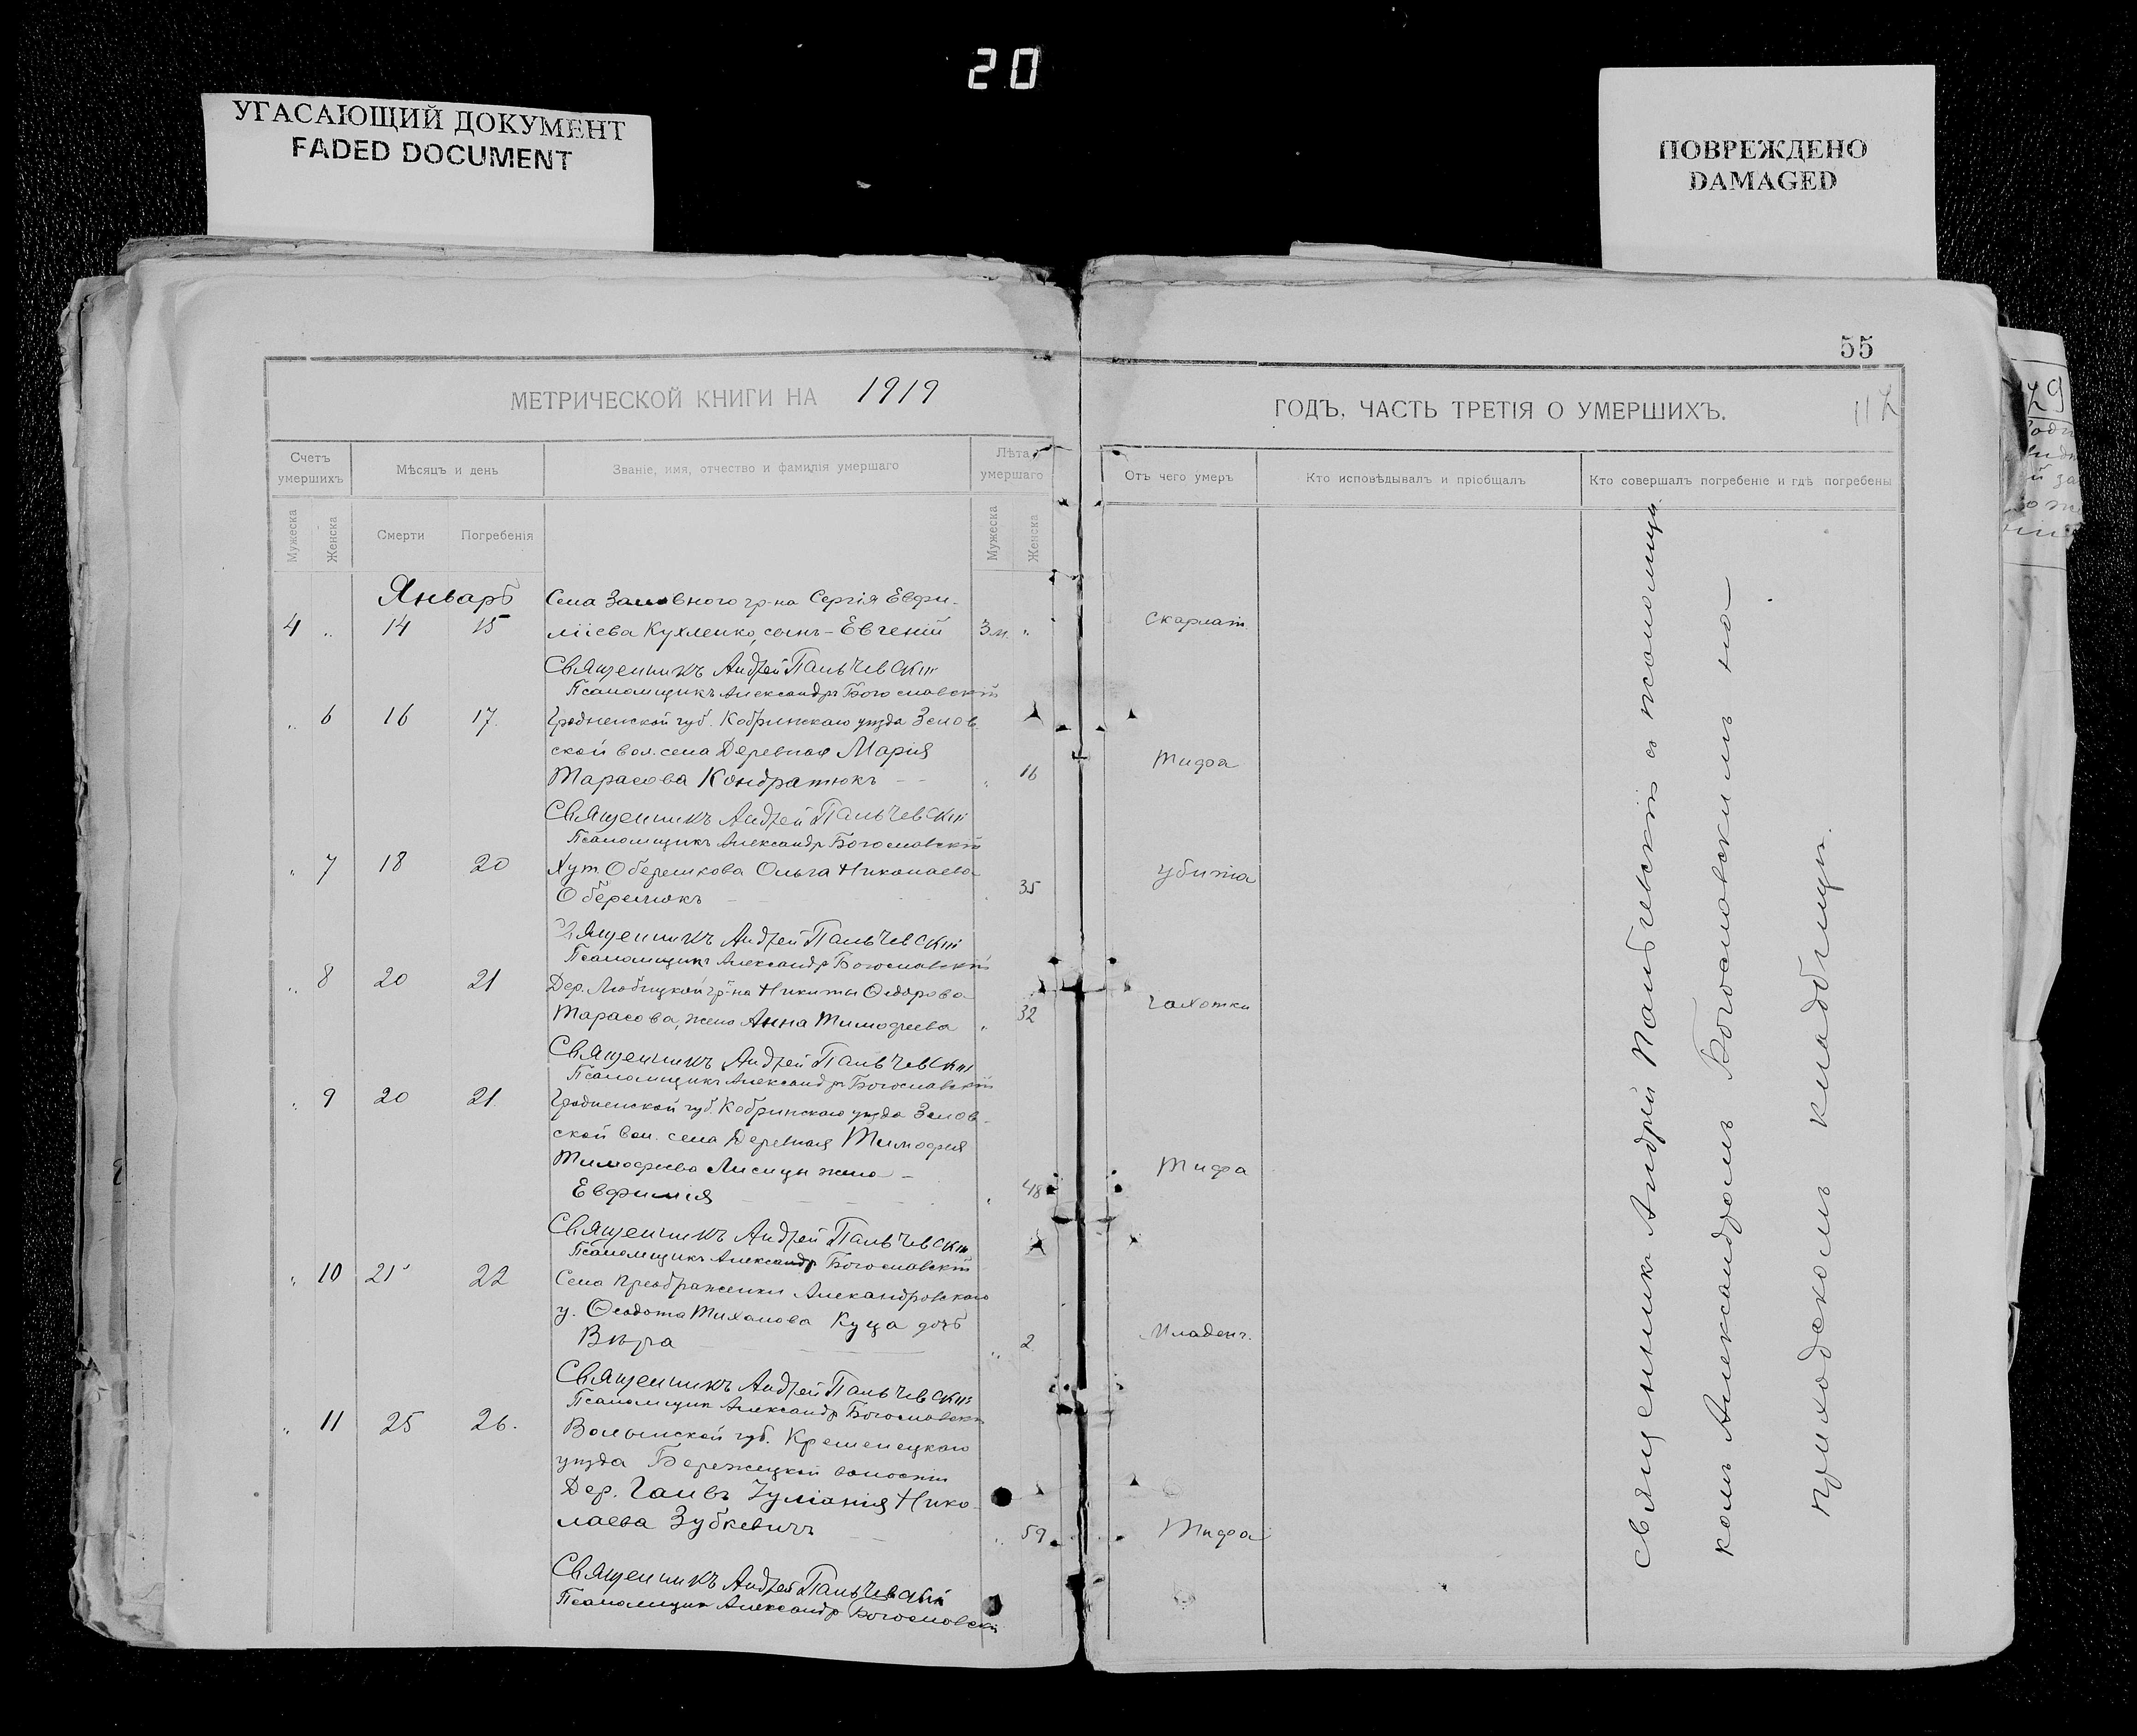 20
УГАСАЮЩИЙ ДОКУМЕНТ
FADED DOCUMENT
ПОВРЕЖДЕНО
DAMAGED
55
МЕТРИЧЕСКОЙ КНИГИ НА 1919
ГОДЪ, ЧАСТЬ ТРЕТІЯ О УМЕРШИХЪ.
Счетъ умершихъ
Мѣсяцъ и день
Званіе, имя, отчество и фамилія умершаго
Лѣта умершаго
Отъ чего умеръ
Кто исповѣдывалъ и пріобщалъ
Кто совершалъ погребеніе и гдѣ погребены
Мужеска
Женска
Смерти
Погребенія
Мужеска
Женска
Январь
Села гр-на Сергія Евфи-
4 „ 14 15 міева Кухленко, сынъ - Евгеній 3 м. „ Скарлат.
Священникъ Андрей Пальчевскій
Псаломщикъ Александръ Богословскій
„ 6 16 17. Гродненской губ. Кобринскаго уѣзда Зелов
ской вол. села Деревная Марія
Тарасова Кондратюкъ - - „ 16 Тифа
Священникъ Андрей Пальчевскій
Псаломщикъ Александр Богословскій
„ 7 18 20 Хут. Оберемкова Ольга Николаева
Оберемокъ 35 убита
Священникъ Андрей Пальчевскій
Псаломщикъ Александр Богословскій
„ 8 20 21 Дер. Любицкой гр-на Никиты Ѳедорова
Тарасова, жена Анна Тимофеева „ 32 Чахотки
Священникъ Андрей Пальчевскій
Псаломщикъ Александръ Богословскій
„ 9 20 21 Гродненской губ. Кобринскаго уѣзда Зелов-
ской вол. села Деревная Тимофея
Тимофеева Лисицы жена -
Евфимія „ 48 Тифа
Священникъ Андрей Пальчевскій
Псаломщикъ Александр Богословскій
„ 10 21 22 Села Преображенки Александровскаго
у. Ѳеодота Куца дочь
Вѣра „ 2 Младенч.
Священникъ Андрей Пальчевскій
Псаломщик Александр Богословскій
„ 11 25 26. Волынской губ. Кременецкаго
уѣзда Бережецкой волости
Дер. Нико-
лаева Зубкевичъ „ 59 Тифа
Священникъ Андрей Пальчевскій
Псаломщик Александр Богословскій
Священникъ Андрей Пальчевскій с псаломщи-
комъ Александромъ Богословскимъ на
приходскомъ кладбищѣ.